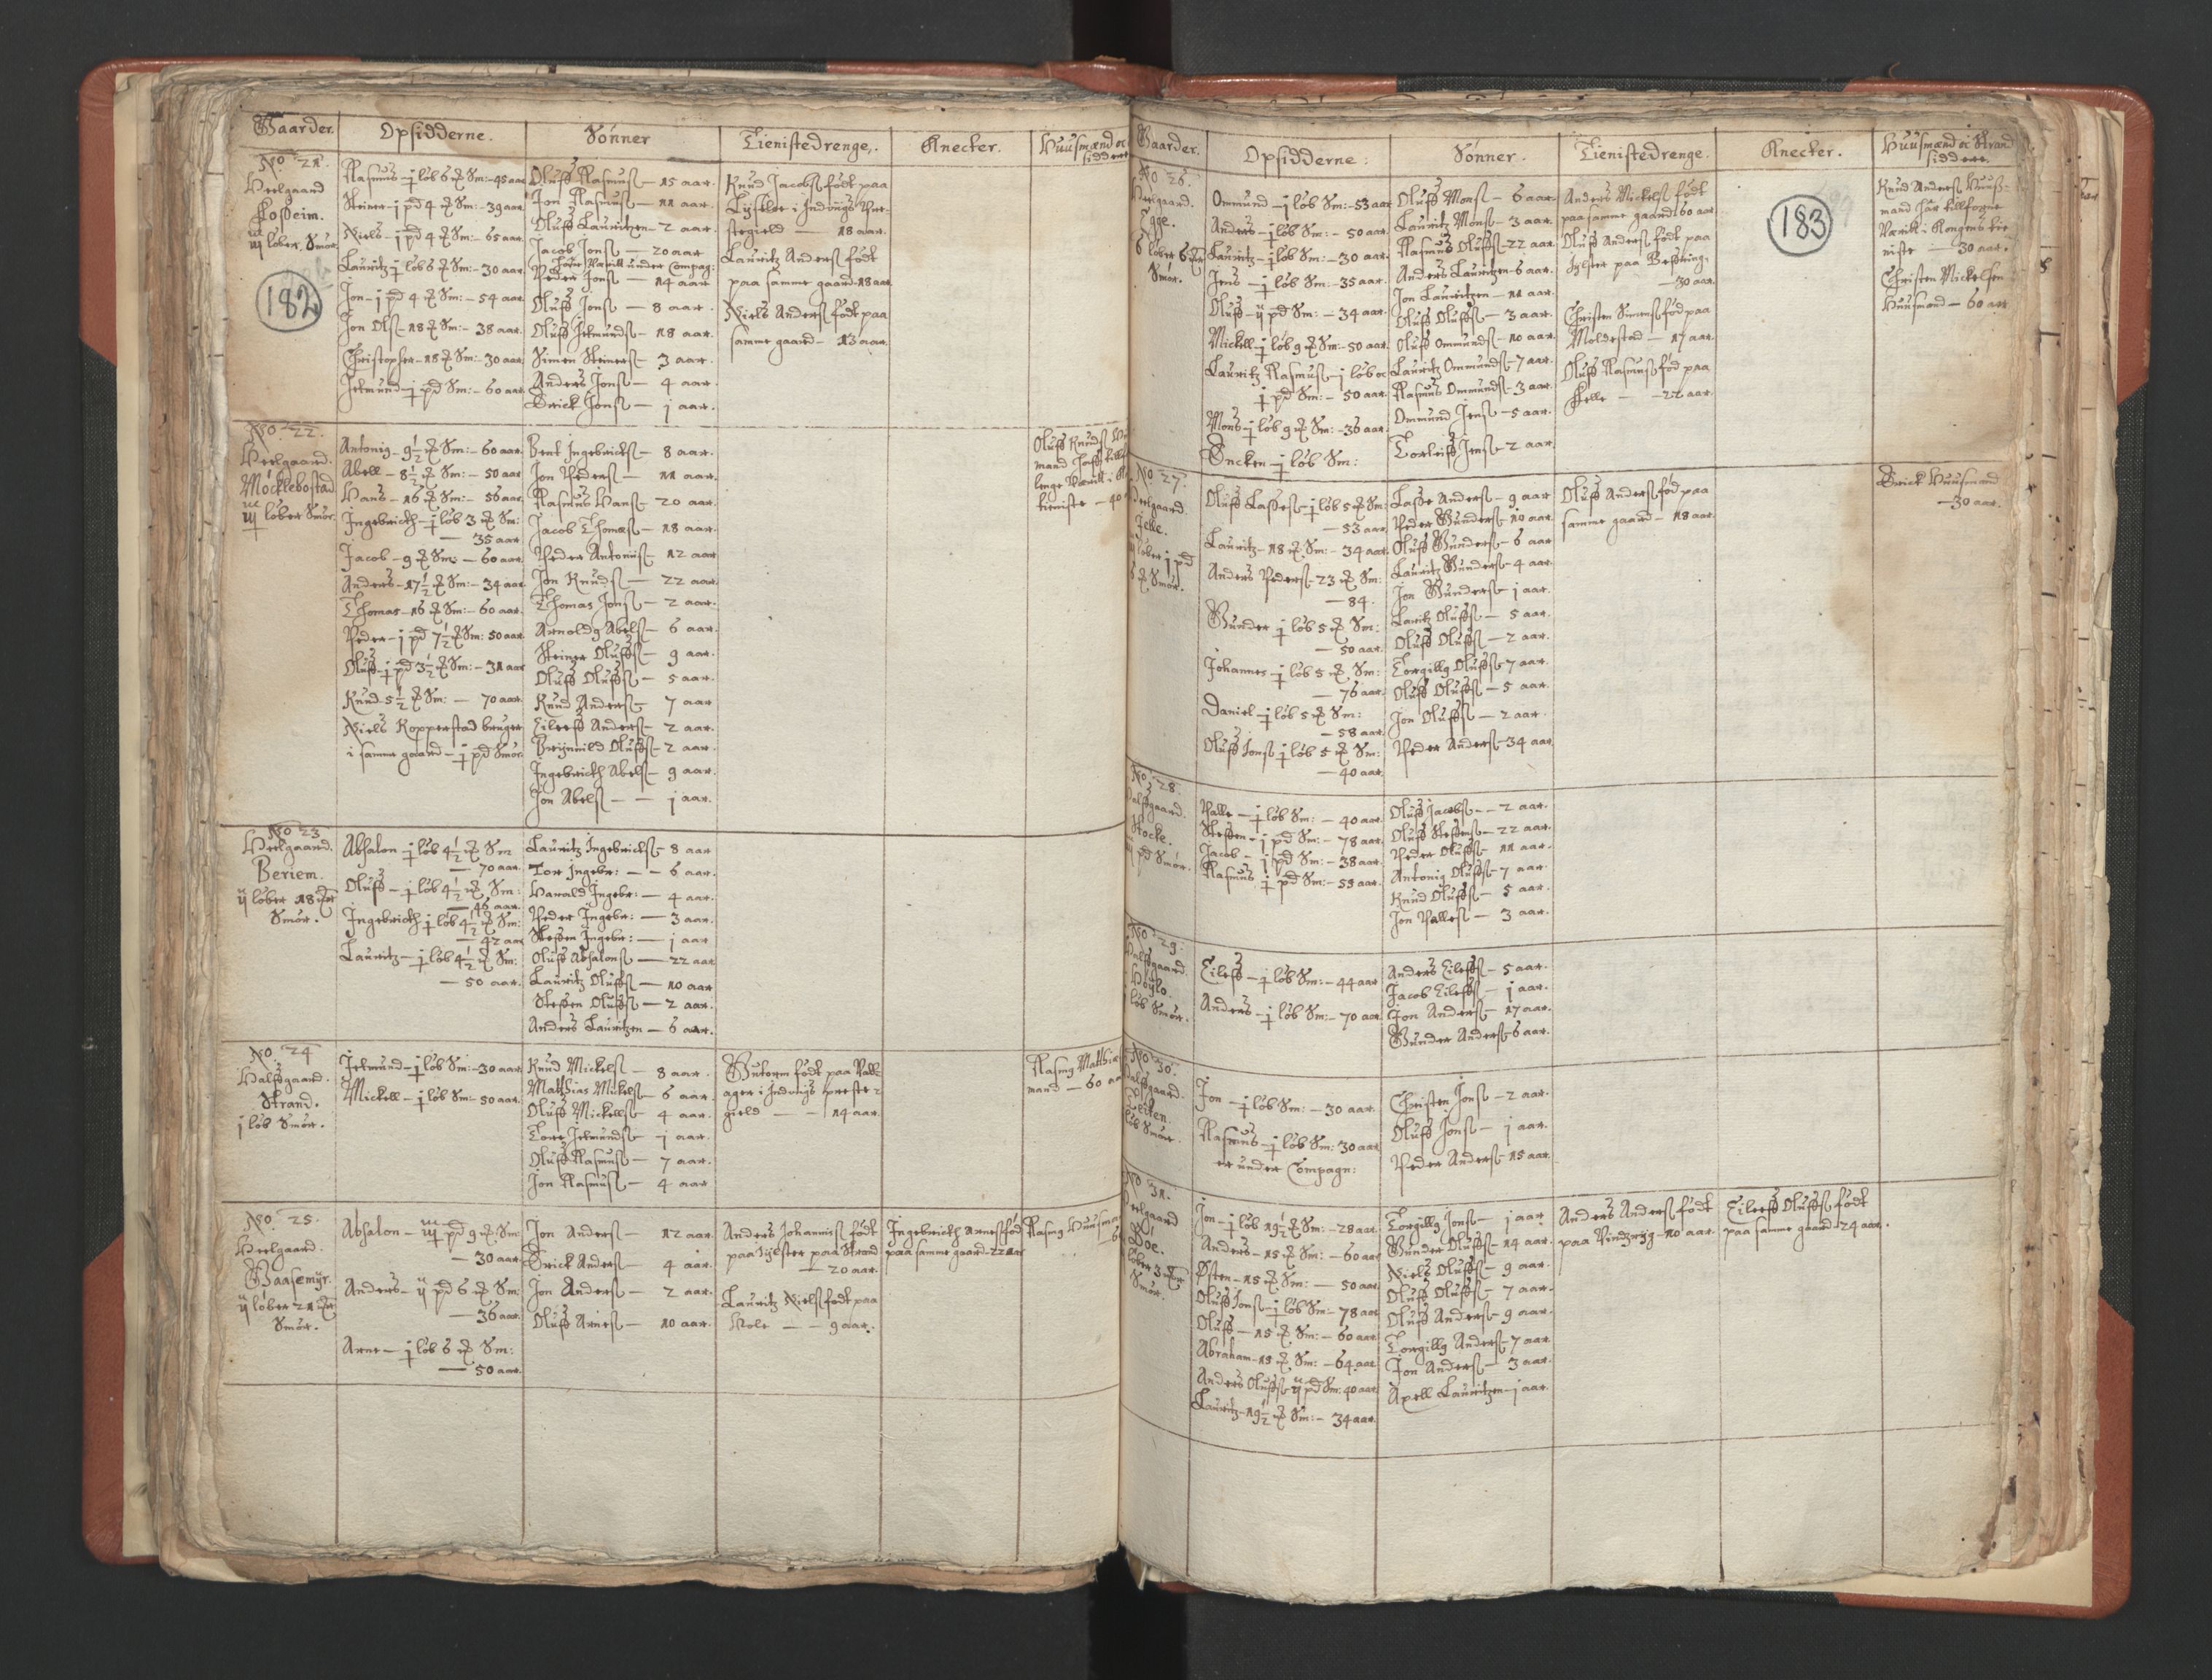 Gaarder.
Opsidderne.
Sønner
Tienistedrenge.
Knecter.
Huusmænd oc
sidder
No. 21.
Heelgaard
løber. Smør.
182
Rasmus – j løb 6 Sm: – 45 aar
Steiner – j pd 4 Sm: – 39 aar
Niels – j pd 4 Sm: – 65 aar.
Lauritz j løb 6 Sm: – 30 aar.
Jon – j pd 4 Sm: – 54 aar
Jon Ols – 18 Sm: – 38 aar.
Christopher – 18 Sm: – 30 aar
Jetmund – j pd Sm: – 60 aar
Oluff Rasmus – 15 aar.
Jon Rasmus – 11 aar.
Oluff Lauritzen – 2 aar.
Jacob Jons – 20 aar
under Compag:
Peder Jons – 14 aar
Oluff Jons – 8 aar.
Oluff Jetmunds – 18 aar.
Simen Steiners – 3 aar.
Anders Jons – 4 aar.
Erick Jons – j aar.
Knud Jacobs født paa
i Indvigs Pre-
stegield — 18 aar.
Lauritz Anders født
paa samme gaard 18 aar.
Niels Anders født paa
samme gaard – 13 aar.
No. 22.
Heelgaard.
Møcklebostad
løber Smør.
Antonig – 9½ Sm: – 60 aar.
Abell – 8½ Sm: – 50 aar
Hans – 16 Sm: – 56 aar.
Ingebricth – j løb 3 Sm:
— 35 aar
Jacob – 9 Sm: – 60 aar
Anders – 17½ Sm: – 34 aar
Thomas – 16 Sm: – 60 aar.
Peder – j pd 7½ Sm: 50 aar
Oluff – j pd 3½ Sm: – 31 aar
Knud 5½ Sm: — 70 aar.
Niels Kopperstad bruger
i samme gaard – j pd Smør.
Bent Ingebrickts – 8 aar.
Jon Peders – 11 aar.
Rasmus Hans – 20 aar.
Jacob Thomæs – 18 aar.
Peder Antoniis – 12 aar
Jon Knuds – 22 aar.
Thomas Jons – 2 aar.
Arnoldg Abels – 6 aar.
Steiner Oluffs – 9 aar.
Oluff Oluffs – 5 aar.
Knud Anders – 7 aar
Eileff Anders – 2 aar.
Brynnild Oluffs – 2 aar.
Ingebricth Abels – 9 aar.
Jon Abels — j aar.
Oluff Knuds
mand
tieniste – 40
No 23
Heelgaard.
Beriem.
ij løber 18
Smør.
Absalon – j løb 4½ Sm
— 70 aar.
Oluff – j løb 4½ Sm:
— 46 aar.
Ingebricth j løb 4½ Sm:
— 42 aar
Lauritz – j løb 4½ Sm:
— 50 aar.
Lauritz Ingebricks – 8 aar
Tore Ingebr: – 6 aar.
Harald Ingebr: — 4 aar.
Peder Ingebr: — 3 aar.
Steffen Ingebr: — j aar
Oluff Absalons — 22 aar
Lauritz Oluffs — 10 aar
Steffen Oluffs – 2 aar.
Anders Lauritzen – 6 aar.
No. 24
Halfgaard.
Strand.
j løb Smør.
Jetmund – j løb Sm: – 30 aar.
Mickell – j løb Sm: 50 aar.
Knud Mickels – 8 aar.
Matthias Mickels – 6 aar.
Oluff Mickells – 4 aar.
Tore Jetmunds – j aar.
Oluff Rasmus – 7 aar.
Jon Rasmus – 4 aar
Gutorm født paa
ager i Indvigs preste-
gield — 14 aar.
Rasmg Matthias
mand – 60 aar
No. 25.
Heelgaard.
Gaasemyr.
ij løber 21
Smør.
Absalon – iij pd 9 Sm:
— 30 aar.
Anders – ij pd 6 Sm:
— 36 aar.
Arne – j løb 6 Sm:
— 50 aar.
Jon Anders – 12 aar.
Erick Anders – 4 aar.
Jon Anders – 2 aar.
Oluff Arnes – 10 aar.
Anders Johannis født
paa Jylster paa Strand
— 20 aar.
Lauritz Niels født paa
— 9 aar.
Ingebricth Arnes fød
paa samme gaard – 22 aar
Rasmg Huusm
Gaarder.
Opsidderne:
Sønner.
Tienistedrenge.
Knecter.
Huusmænd oc Strand
sidder.
No 26.
Heelgaard.
Egge.
6 løber 6
Smør.
Ommund – j løb Sm: – 53 aar
Anders – j løb Sm: – 50 aar.
Lauritz – j løb Sm: – 30 aar.
Jens – j løb Sm: – 35 aar.
Oluff – ij pd Sm: – 34 aar.
Mickell – j løb 9 Sm – 50 aar.
Lauritz Rasmus – j løb oc
j pd Sm: – 50 aar.
Mons – j løb 9 Sm: – 36 aar.
Encken – j løb Sm:
Oluff Mons – 6 aar.
Lauritz Mons – 3 aar.
Rasmus Oluffs – 22 aar.
Anders Lauritzen – 6 aar.
Jon Lauritzen – 11 aar.
Oluff Oluffs – 3 aar.
Oluff Ommunds – 10 aar.
Lauritz Ommunds – 7 aar.
Rasmus Ommunds – 3 aar.
Ommund Jens – 5 aar.
Torleiff Jens – 2 aar.
Anders Mickels født
paa samme gaard 60 aar.
Oluff Anders født paa
Jylster paa
— 30 aar.
Christen Simens fød paa
Moldestad – 17 aar.
Oluff Rasmus fød paa
— 22 aar.
183
Knud Anders Huuß-
mand har tillforne
Værit i Kongens tie
niste — 30 aar.
Christen Mickelsen
Huusmand – 60 aar
No. 27.
Heelgaard.
løber j pd
Smør.
Oluff Lasses – j løb 5 Sm:
— 53 aar
Lauritz – 18 Sm: – 34 aar.
Anders Peders – 23 Sm:
— 84.
Gunder j løb 5 Sm:
— 50 aar.
Johannes – j løb 5 Sm:
— 76 aar.
Daniel – j løb 5 Sm:
— 58 aar.
Oluff Jons j løb 5 Sm:
— 40 aar.
Lasse Anders – 9 aar
Peder Gunders – 10 aar.
Oluff Gunders – 6 aar
Lauritz Gunders – 4 aar.
Jon Gunders – j aar.
Laritz Oluffs – 5 aar.
Oluff Oluffs – 2 aar.
Torgillg Oluffs – 7 aar.
Oluff Oluffs – 5 aar.
Jon Oluffs – 2 aar.
Peder Anders – 34 aar
Oluff Anders fød paa
samme gaard – 18 aar.
Erick Huusmand
— 30 aar.
No. 28.
Halfgaard.
Stocke.
pd Smør.
Palle – j løb Sm: – 40 aar.
Steffen – j pd Sm: – 78 aar.
Jacob – j pd Sm: – 38 aar.
Rasmus j pd Sm: – 59 aar.
Oluff Jacobs – 2 aar.
Oluff Steffens – 22 aar.
Peder Oluffs – 11 aar.
Antonig Oluffs – 7 aar.
Knud Oluffs – 5 aar.
Jon Palles – 3 aar.
No. 29.
Halfgaard.
løb Smør.
Eileff – j løb Sm: – 44 aar
Anders – j løb Sm: – 70 aar.
Anders Eileffs – 5 aar.
Jacob Eileffs – j aar.
Jon Anders – 17 aar.
Gunder Anders – 6 aar.
No. 30.
Halfgaard.
løb Smør.
Jon – j løb Sm: – 30 aar.
Rasmus – j løb Sm: 30 aar
er under Compagn:
Christen Jons – 2 aar.
Oluff Jons – j aar.
Peder Anders – 15 aar.
No. 31.
Heelgaard
Boe.
løber 3
Smør.
Jon – j løb 19½ Sm: – 28 aar.
Anders – 15 Sm: – 60 aar
Østen – 15 Sm: – 50 aar.
Oluff Jons – j løb Sm: – 78 aar
Oluff – 15 Sm: – 60 aar
Abraham – 15 Sm: – 64 aar
Anders Oluffs – ij pd Sm: 40 aar
Lauritz – 19½ Sm: – 34 aar.
Torgillg Jons – j aar
Gunder Oluffs – 14 aar.
Niels Oluffs – 9 aar.
Oluff Oluffs – 7 aar.
Oluff Anders – 9 aar.
Torgillg Anders – 7 aar.
Jon Anders – 3 aar.
Axell Lauritzen – j aar.
Anders Anders født
paa – 10 aar.
Eileff Oluffs født
paa samme gaard – 24 aar.